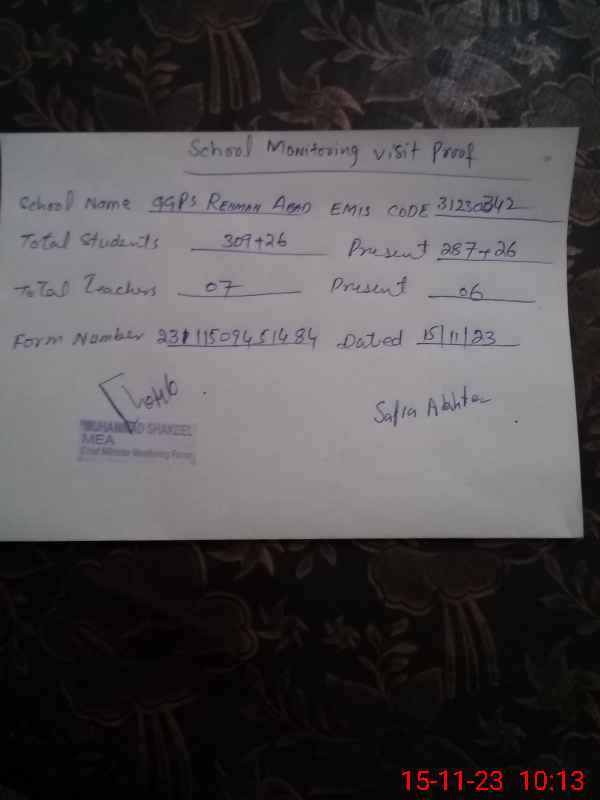 School Monitoring visit Proof
School Name GGPS REHMAN ABAD EMIS CODE 31230342
Total Students 309+26 Present 287+26
Total Teachers 07 Present 06
Form Number 23111509451484 Dated 15/11/23
Safia Akhter
MUHAMMAD SHAKEEL
MEA
Chief Minister Monitoring Force
15-11-23 10:13